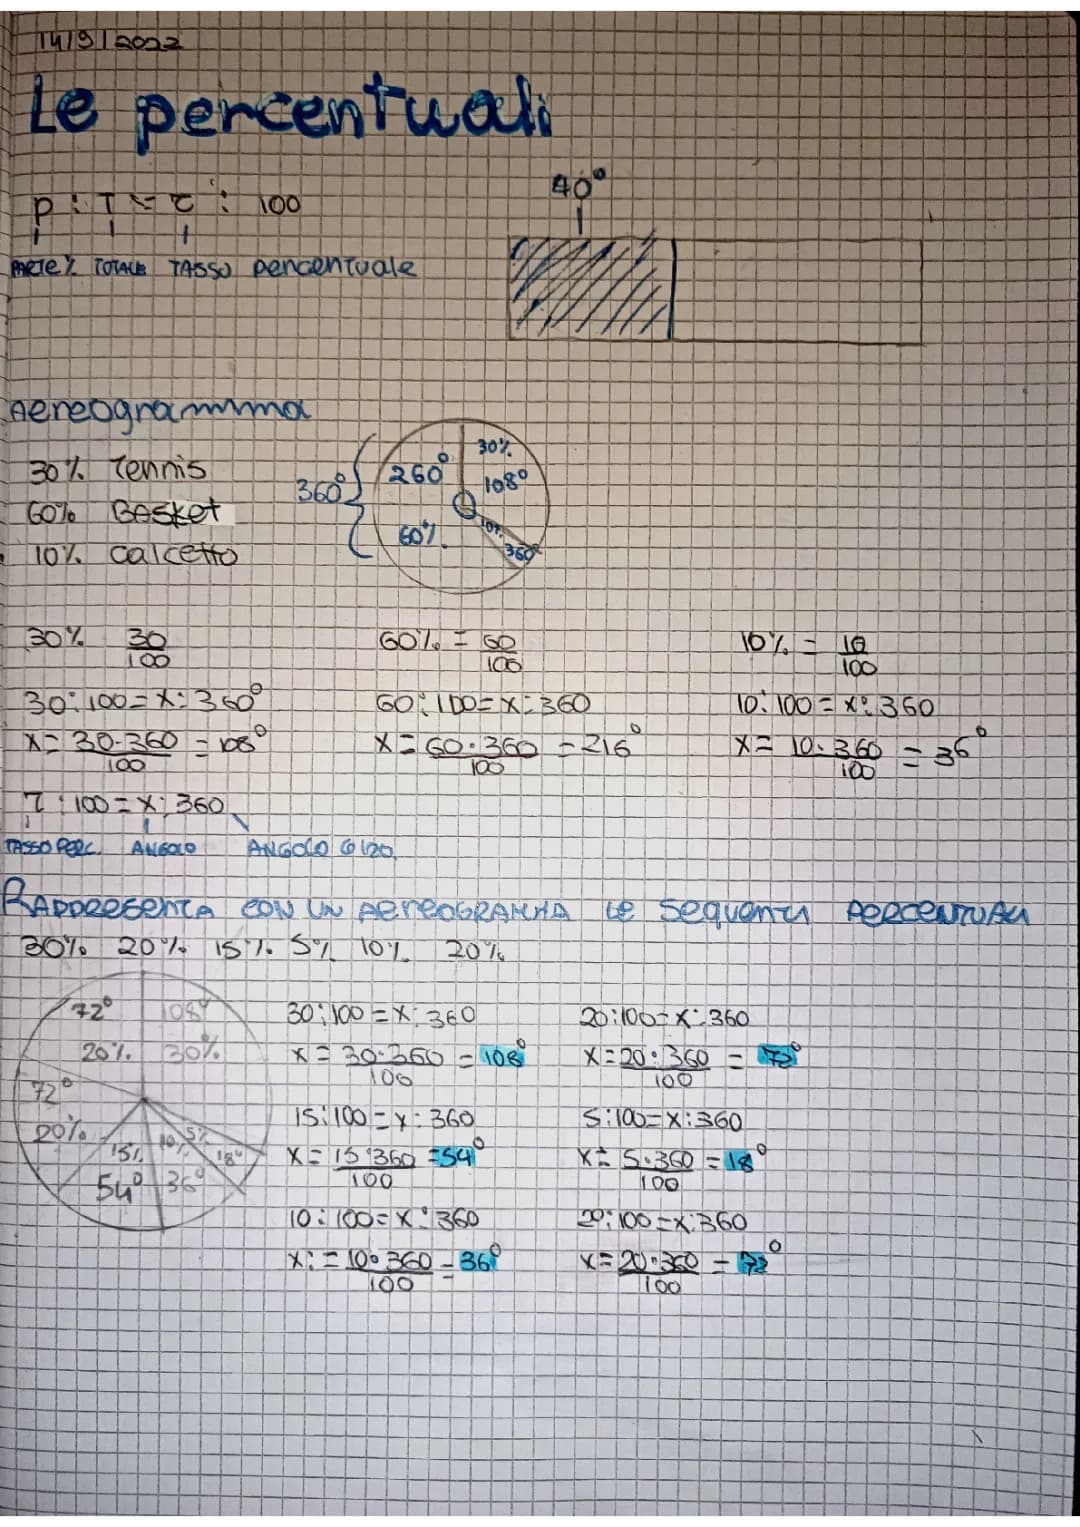 14/9/2022
Le percentuali
40°
p : T = τ : 100
PARTE% TOTALE TASSO percentuale
Aereogramma
30% Tennis
60% Basket
10% calcetto
360°
260°
60%
30%
108°
10%
360°
30% 30/100
60% = 60/100
10% = 10/100
30:100=x:360°
60:100=x:360
10:100=x:360
x= 30·360/100 = 108°
x= 60·360/100 = 216°
x= 10·360/100 = 36°
τ : 100 = x : 360
TASSO PERC. ANGOLO ANGOLO GIRO
RAPPRESENTA CON UN AEREOGRAMMA LE SEQUENTI PERCENTUALI
30% 20% 15% 5% 10% 20%
72° 108°
20% 30%
72°
20% 15% 10% 5% 18°
54° 36°
30:100=x:360
20:100=x:360
x= 30·360/100 = 108°
x= 20·360/100 = 72°
15:100=x:360
5:100=x:360
x= 15·360/100 = 54°
x= 5·360/100 = 18°
10:100=x:360
20:100=x:360
x:= 10·360/100 = 36°
x= 20·360/100 = 72°